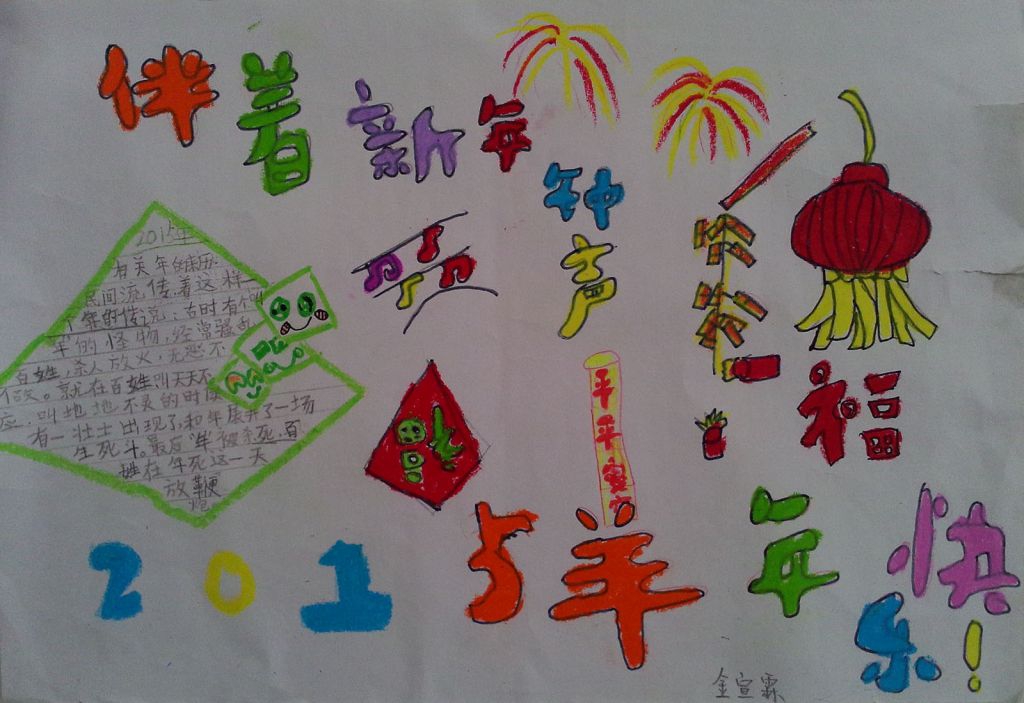 伴着新年
钟声
2015年
有关年的来历.
民间流传着这样一
个年的传说：古时有个叫
年的怪物，经常骚扰
百姓，杀人放火，无恶不
做。就在百姓叫天天不
应，叫地地不灵的时候
有一壮士出现了，和年展开了一场
生死斗。最后年被杀死，百
姓在年死这一天
放鞭
炮
平平安安
福
2015羊年快
乐！
金宣霖